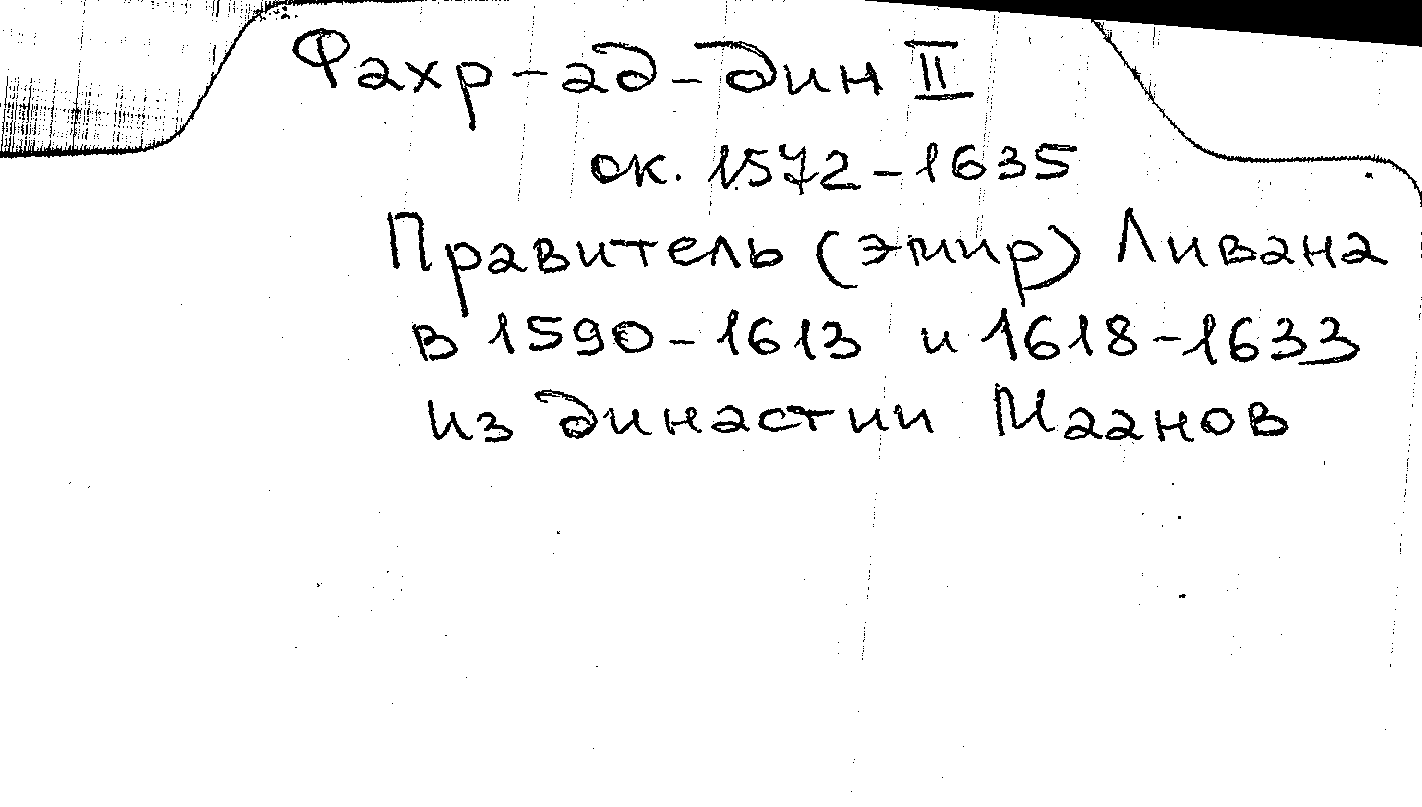 Фахр-ад-дин II
ок. 1572-1635
Правитель (эмир) Ливана
в 1590-1613 и 1618-1633
из династии Маанов